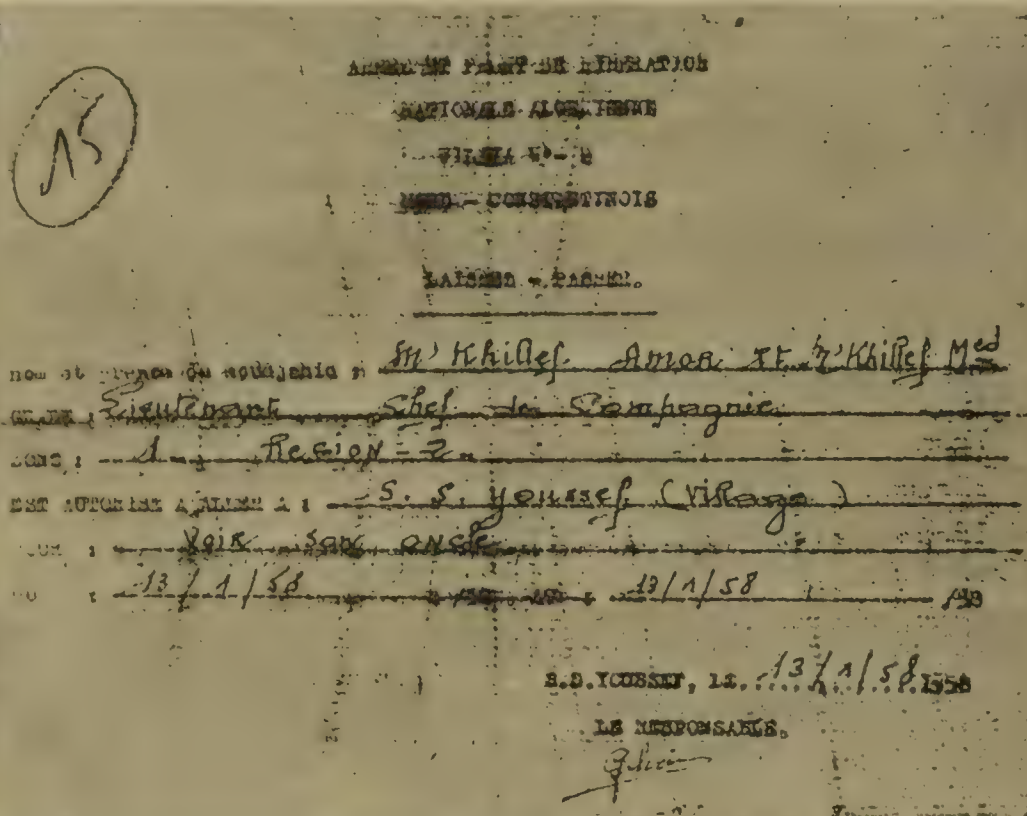 15
ARMEE ET FRONT DE LIBERATION
NATIONALE ALGERIENNE
WILAYA N°- 2
NORD - CONSTANTINOIS
LAISSER - PASSER.
nom et prenom du moudjahid : M'Khillef Amor et M'Khillef Med
GRADE : Lieutenant Chef de Compagnie
ZONE : 1 Region = 2 -
EST AUTORISE A ALLER A : S. S. Youssef (Village)
POUR : Voir son oncle
DU : 13/1/58 /58 AU : 13/1/58 /58
S.S.YOUSSEF, LE 13/1/58 1958
LE RESPONSABLE.